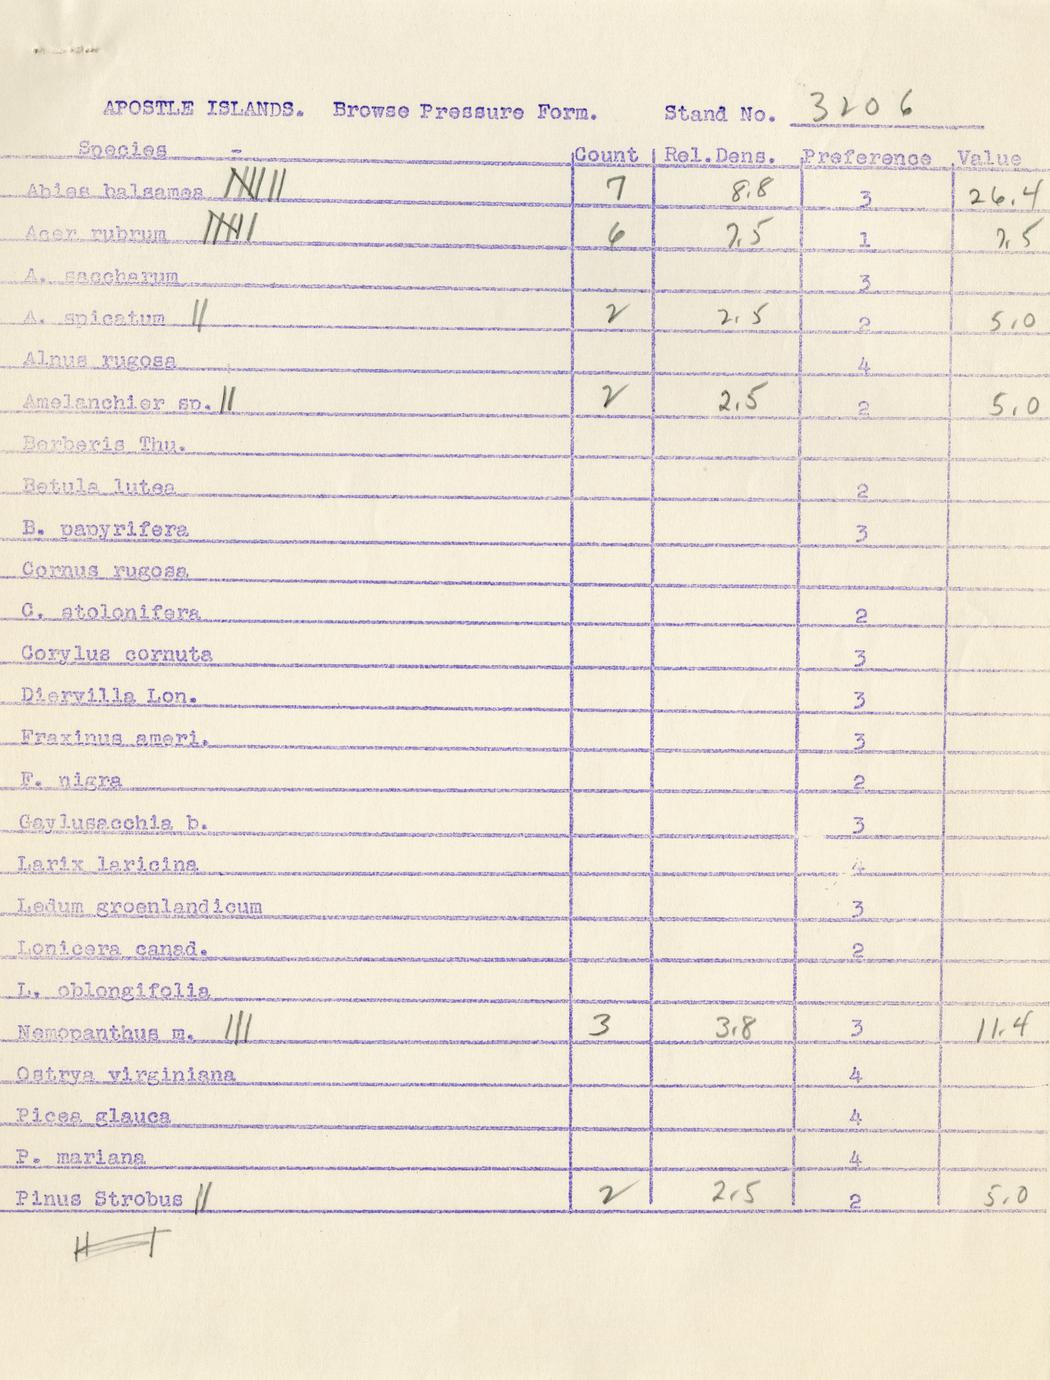 APOSTLE ISLANDS. Browse Pressure Form. Stand No. 3206
Species - Count Rel.Dens. Preference Value
Abies balsamea 7 8.8 3 26.4
Acer rubrum 6 7.5 1 7.5
A. saccharum 3
A. spicatum 2 2.5 2 5.0
Alnus rugosa 4
Amelanchier sp. 2 2.5 2 5.0
Berberis Thu.
Betula lutea 2
B. papyrifera 3
Cornus rugosa
C. stolonifera 2
Corylus cornuta 3
Diervilla Lon. 3
Fraxinus ameri. 3
F. nigra 2
Gaylusacchia b. 3
Larix laricina 4
Ledum groenlandicum 3
Lonicera canad. 2
L. oblongifolia
Nemopanthus m. 3 3.8 3 11.4
Ostrya virginiana 4
Picea glauca 4
P. mariana 4
Pinus Strobus 2 2.5 2 5.0